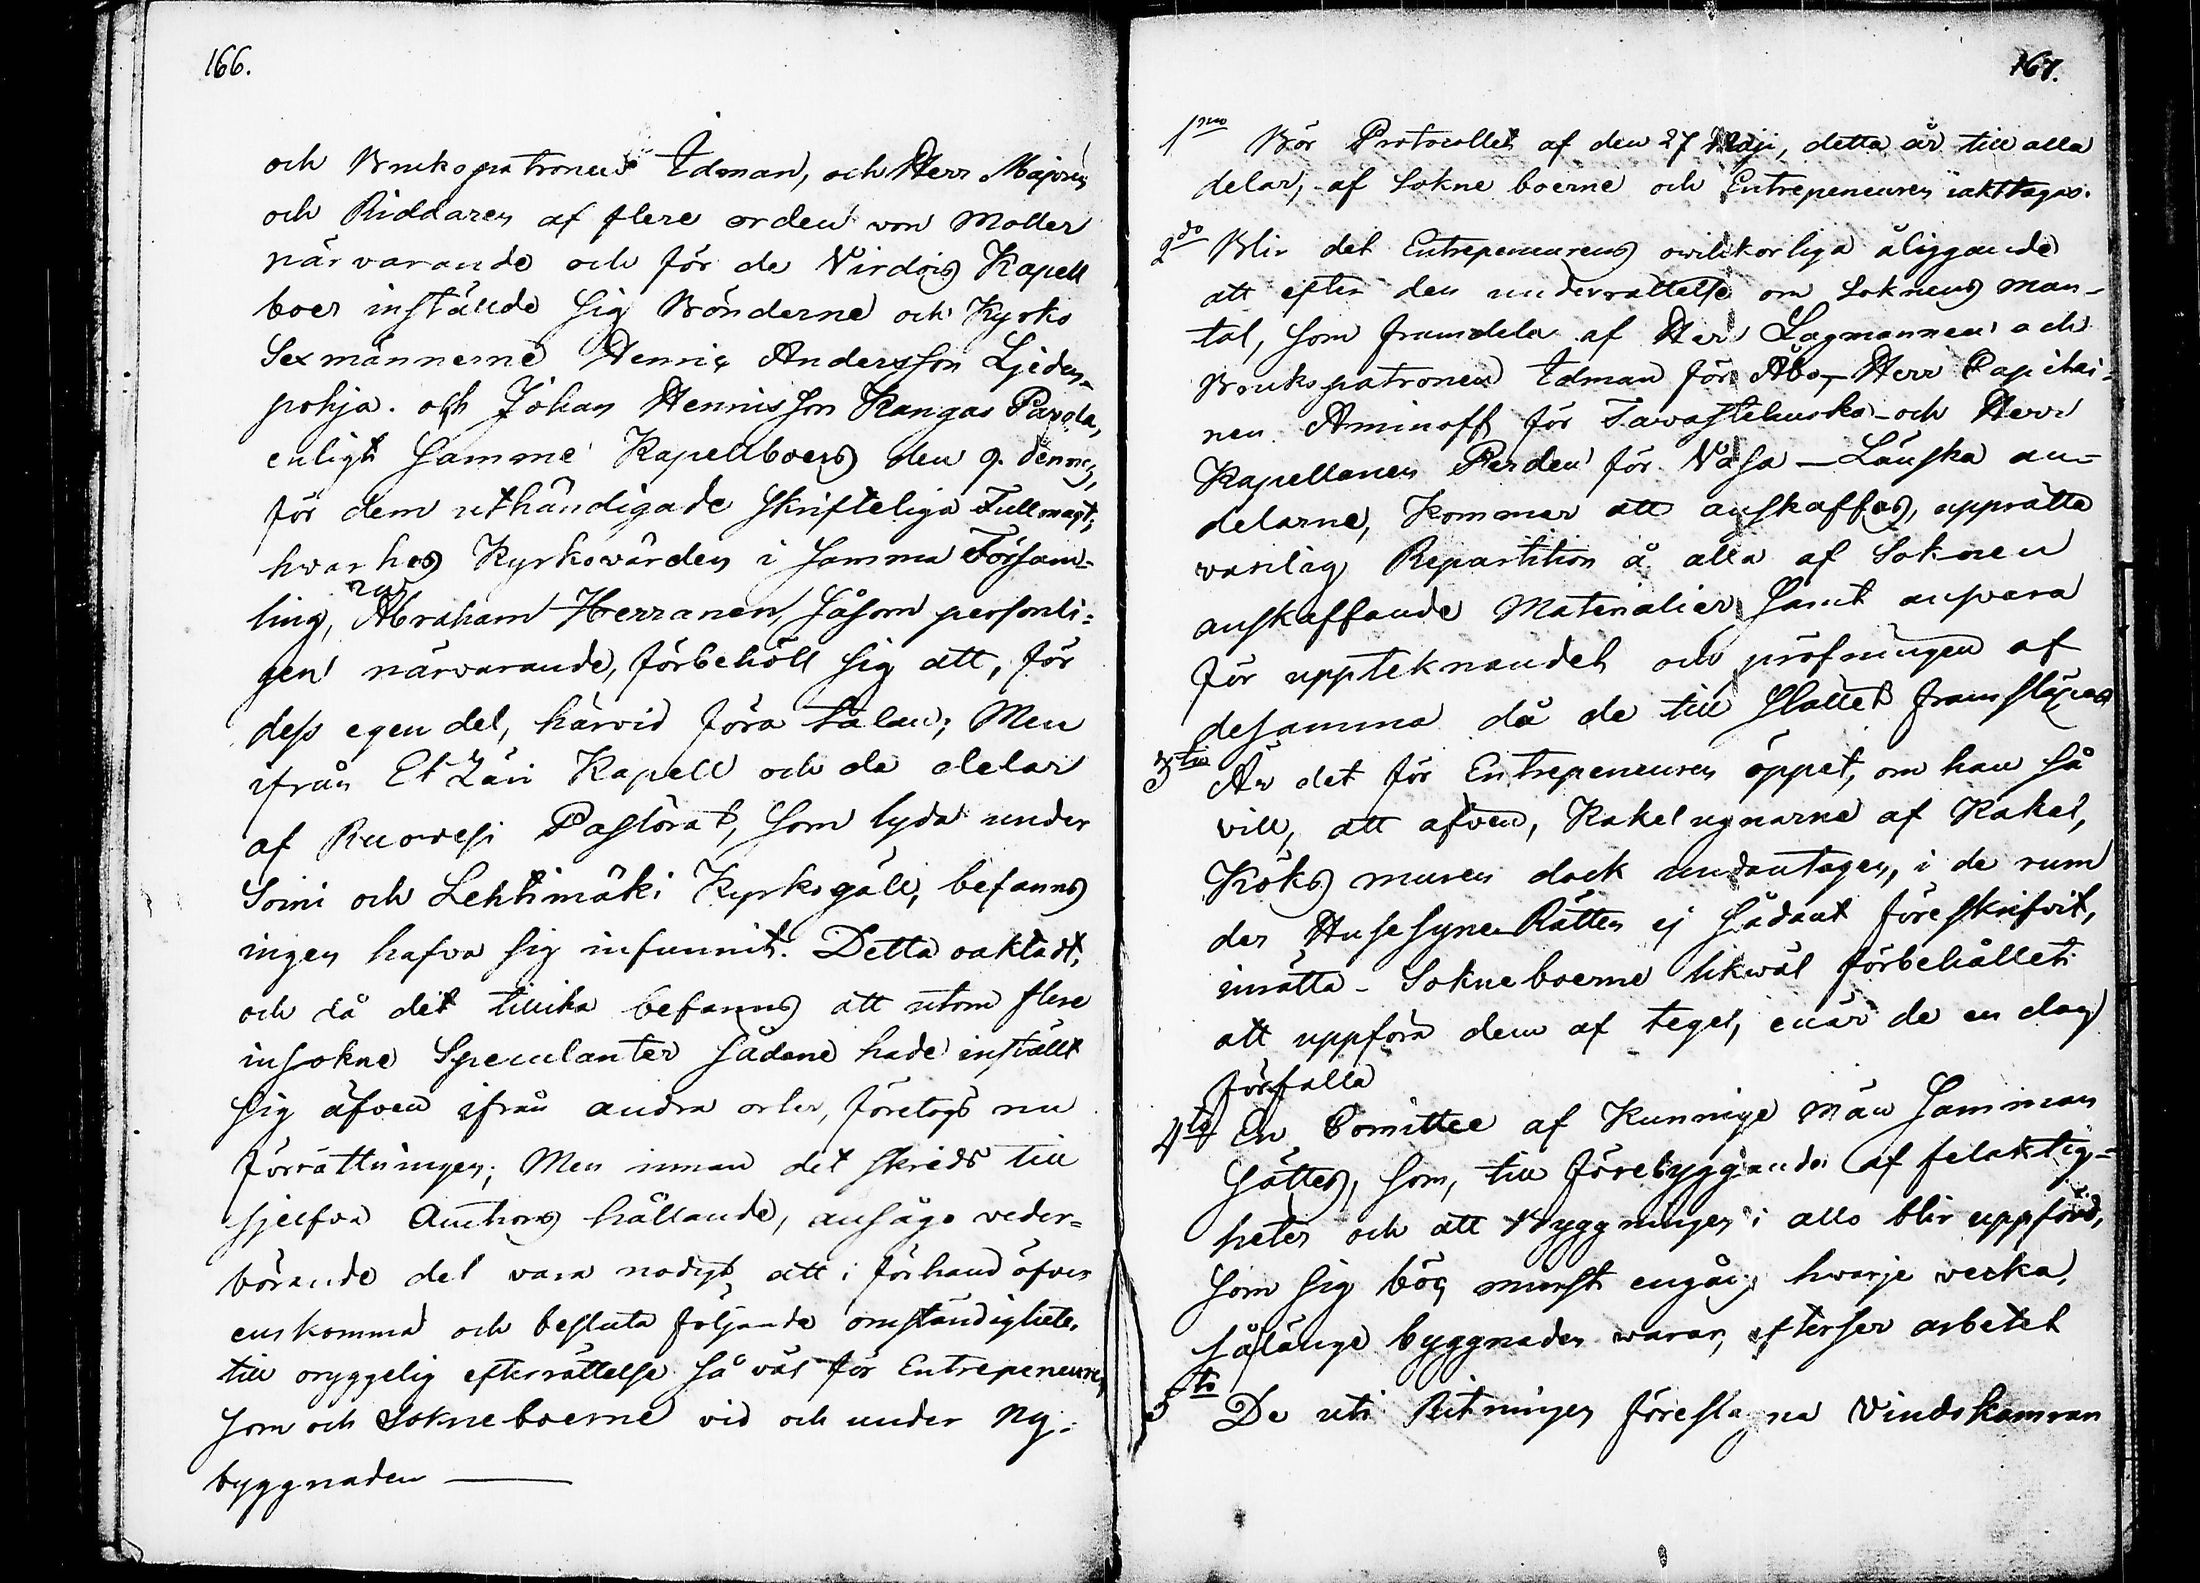 166.
och Brukspatronen Idman, och Herr Majoren
och Riddaren af flere orden von Moller
närvarande och för de Virdois Kapell
boer inställde sig Bönderne och Kyrko
Sexmännerne Henric Andersson Ljeden-
pohja. och Johan Henrisson Kangas Parola,
enligt samme Kapellboers den 9. dennes,
för dem uthändigade skrifteliga Fullmagt,
hvarhos Kyrkovärden i samma Försam-
ling, Abraham Herranen, såsom personli-
gen närvarande, förbehöll sig att, för
dess egen del, härvid föra talan; Men
ifrån Etzäri Kapell och de delar
af Ruovesi Pastorat, som lyda under
Soini och Lehtimäki Kyrkogäll, befanns
ingen hafva sig infunnit. Detta oaktadt,
och då det tillika befanns att utom flere
insokne Speculanter sådane hade inställt
sig äfven ifrån andra orter, företogs nu
förrättningen; Men innan det skreds till
sjelfva Auctions hållande, ansågo veder-
börande det vara nödigt, att i förhand öfver
enskomma och besluta följande omständigheter
till oryggelig efterrättelse så väl för Entrepeneuren
som och Sokneboerne vid och under Ny-
byggnaden —
167.
1mo Bör Protocollet af den 27 Maji, detta år till alla
delar, af Sokne boerne och Entrepeneuren iakttagas.
2do Blir det Entrepeneurens ovilkorliga åliggande
att efter den underrättelse om Soknens man-
tal, som framdela af Herr Lagmannen och
Brukspatronen Idman för Åbo, — Herr Capitai-
nen Aminoff för Tavastehuska — och Herr
Kapellanen Perden för Vasa — Länska an-
delarne, kommer att anskaffas, upprätta
vanlig Repartition å alla af Soknen
anskaffande Materialier, samt ansvara
för uppteknandet och pröfningen af
desamma då de till stället framsläpas
3tio Är det för Entrepeneuren öppet, om han så
vill, att äfven, Kakelugnarne af Kakel,
Köks muren dock undantagen, i de rum
der Husesyne-Rätten ej sådant föreskrifvit,
inrätta — Sokneboerne likväl förbehållet
att uppföra dem af tegel, enär de en dag
förfalla
4to En Comittee af Kunnige män samman
sättes, som, till förebyggande af felaktig-
heter och att Byggningen i allo blir uppförd,
som sig bör, minst engång hvarje vecka,
sålänge byggnaden varar, efterser arbetet
5to De uti Ritningen föreslagna Vindskamran